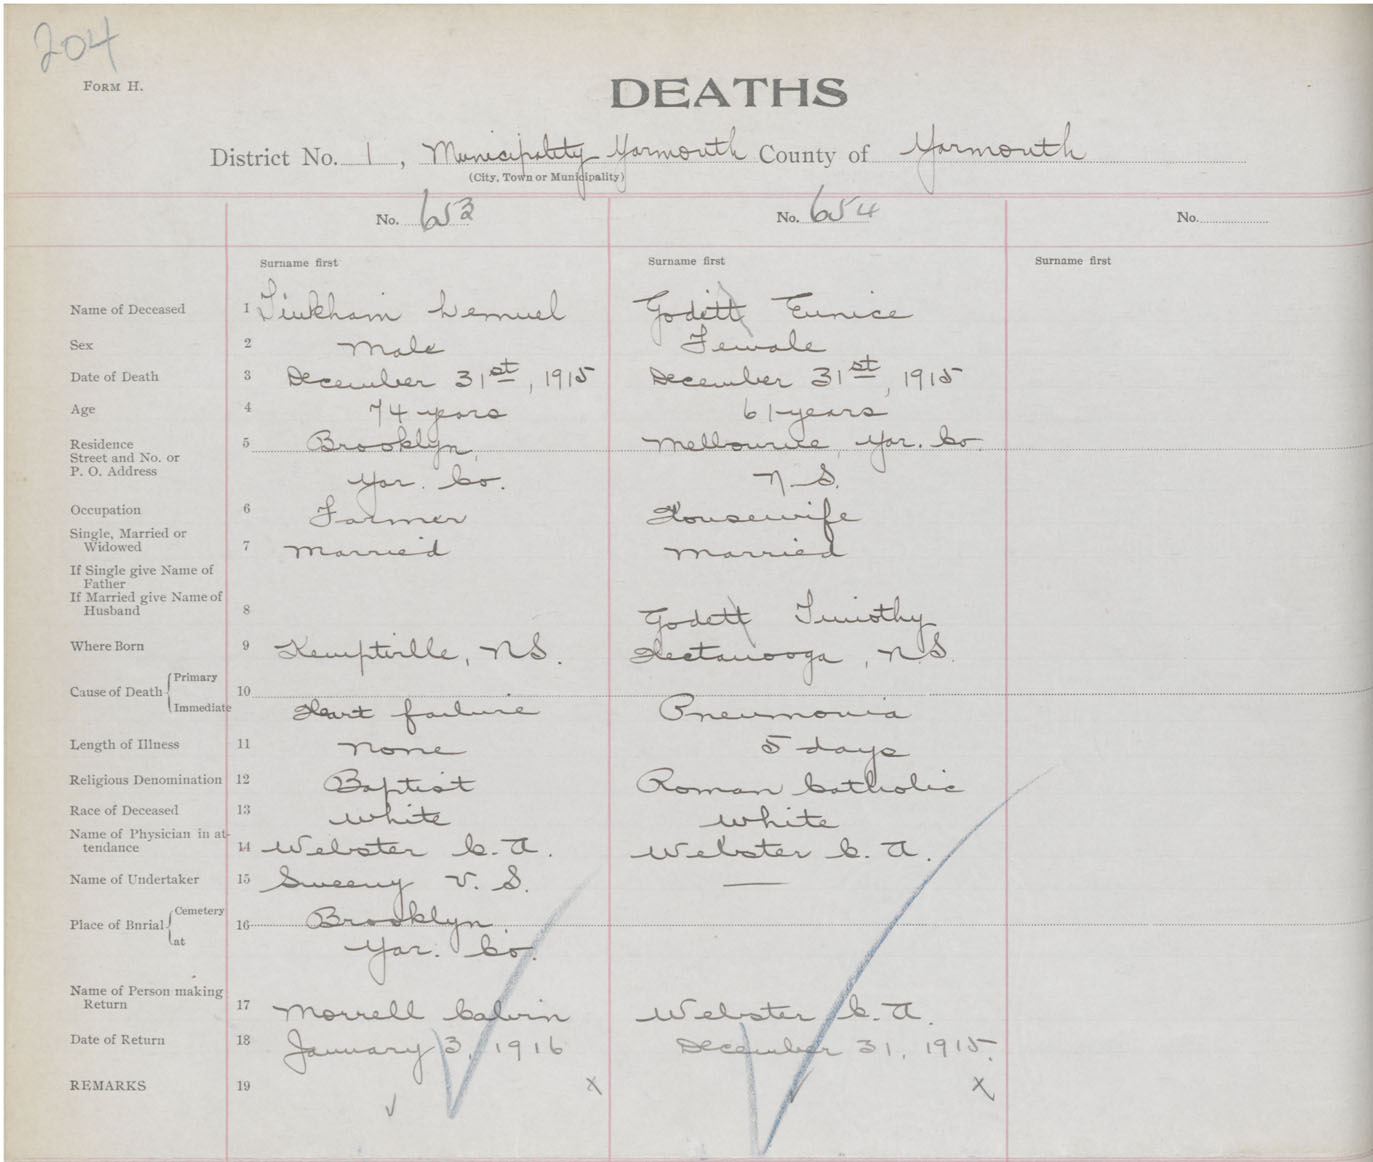 204
FORM H.
DEATHS
District No. 1, Municipality Yarmouth County of Yarmouth
(City, Town or Municipality)
No. 653 No. 654 No.
Surname first Surname first Surname first
Name of Deceased 1 Tinkham Lemuel Godett Eunice
Sex 2 Male Female
Date of Death 3 December 31st, 1915 December 31st, 1915
Age 4 74 years 61 years
Residence 5 Brooklyn, Melbourne, Yar. Co.
Street and No. or
P. O. Address Yar. Co. N S.
Occupation 6 Farmer Housewife
Single, Married or
Widowed 7 Married Married
If Single give Name of
Father
If Married give Name of
Husband 8 Godett Timothy
Where Born 9 Kemptville, N S. Hectanooga, N S.
Primary
Cause of Death 10
Immediate Heart failure Pneumonia
Length of Illness 11 None 5 days
Religious Denomination 12 Baptist Roman Catholic
Race of Deceased 13 White White
Name of Physician in at-
tendance 14 Webster C. A. Webster C. A.
Name of Undertaker 15 Sweeny V. S. —
Cemetery
Place of Burial 16 Brooklyn
at Yar. Co.
Name of Person making
Return 17 Morrell Calvin Webster C. A.
Date of Return 18 January 3, 1916 December 31, 1915.
REMARKS 19 x x